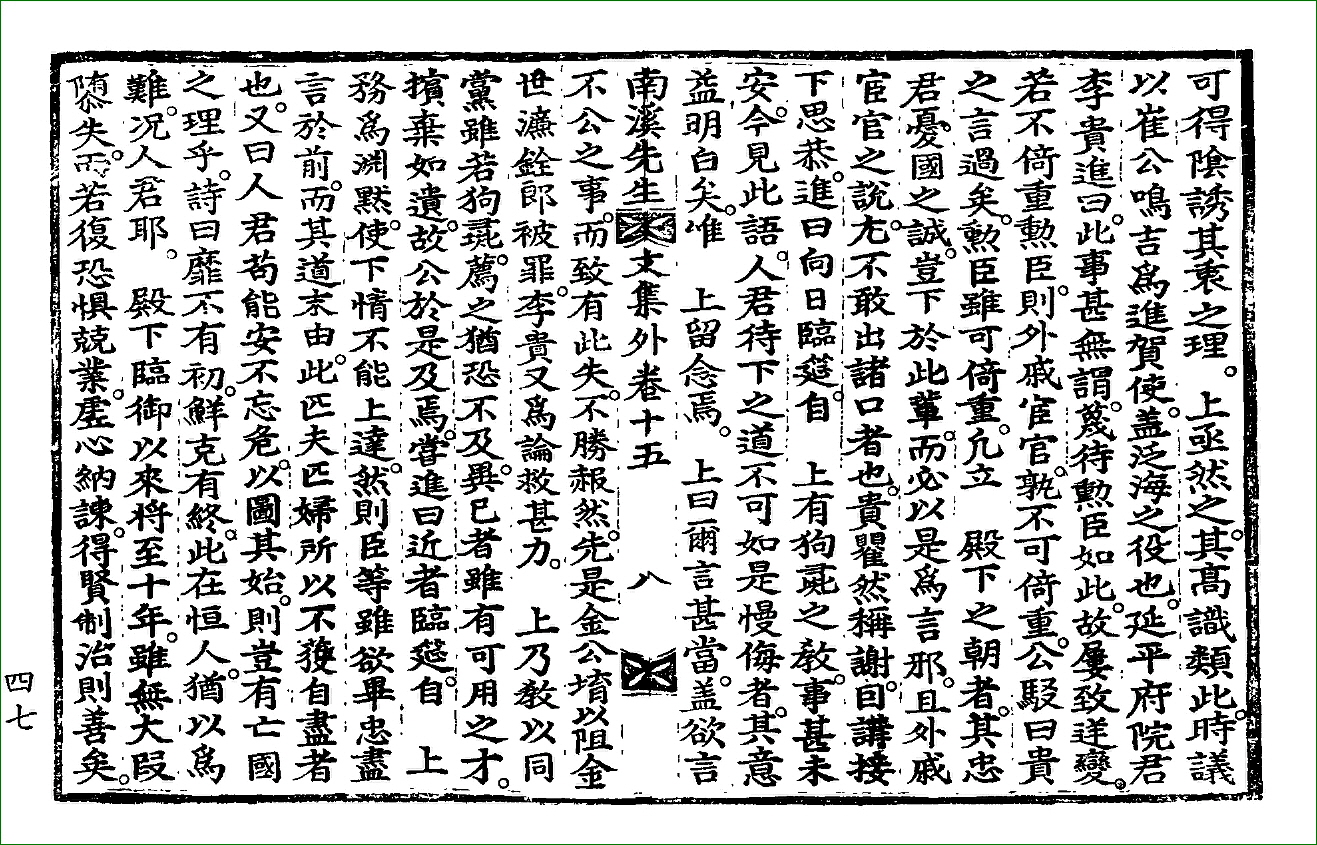 可得陰誘其衷之理。 上亟然之。其高識類此。時議
以崔公鳴吉爲進賀使。盖泛海之役也。延平府院君
李貴進曰。此事甚無謂。蔑待勳臣如此。故屢致逆變。
若不倚重勳臣。則外戚宦官。孰不可倚重。公駁曰。貴
之言過矣。勳臣雖可倚重。凢立 殿下之朝者。其忠
君憂國之誠。豈下於此軰。而必以是爲言邪。且外戚
宦官之說。尤不敢出諸口者也。貴瞿然稱謝。自講接
下思恭。進曰。向日臨筵。自 上有狗彘之敎。事甚未
安。今見此語。人君待下之道。不可如是慢侮者。其意
益明白矣。唯 上留念焉。 上曰。爾言甚當。盖欲言
南溪先生朴文集外卷十五 八
不公之事。而致有此失。不勝赧然。先是金公堉以阻金
世濂銓郞被罪。李貴又爲論救甚力。 上乃敎以同
黨雖若狗彘。薦之猶恐不及。異已者雖有可用之才。
擯棄如遺。故公於是及焉。嘗進曰。近者臨筵。自 上
務爲淵默。使下情不能上達。然則臣等雖欲畢忠盡
言於前。而其道末由。此匹夫匹婦所以不獲自盡者
也。又曰。人君苟能安不忘危。以圖其始。則豈有亡國
之理乎。詩曰。靡不有初。鮮克有終。此在恒人。猶以爲
難。况人君耶。 殿下臨御以來。將至十年。雖無大段
隳失。而若復恐惧兢業。虛心納諫。得賢制治則善矣。
四七